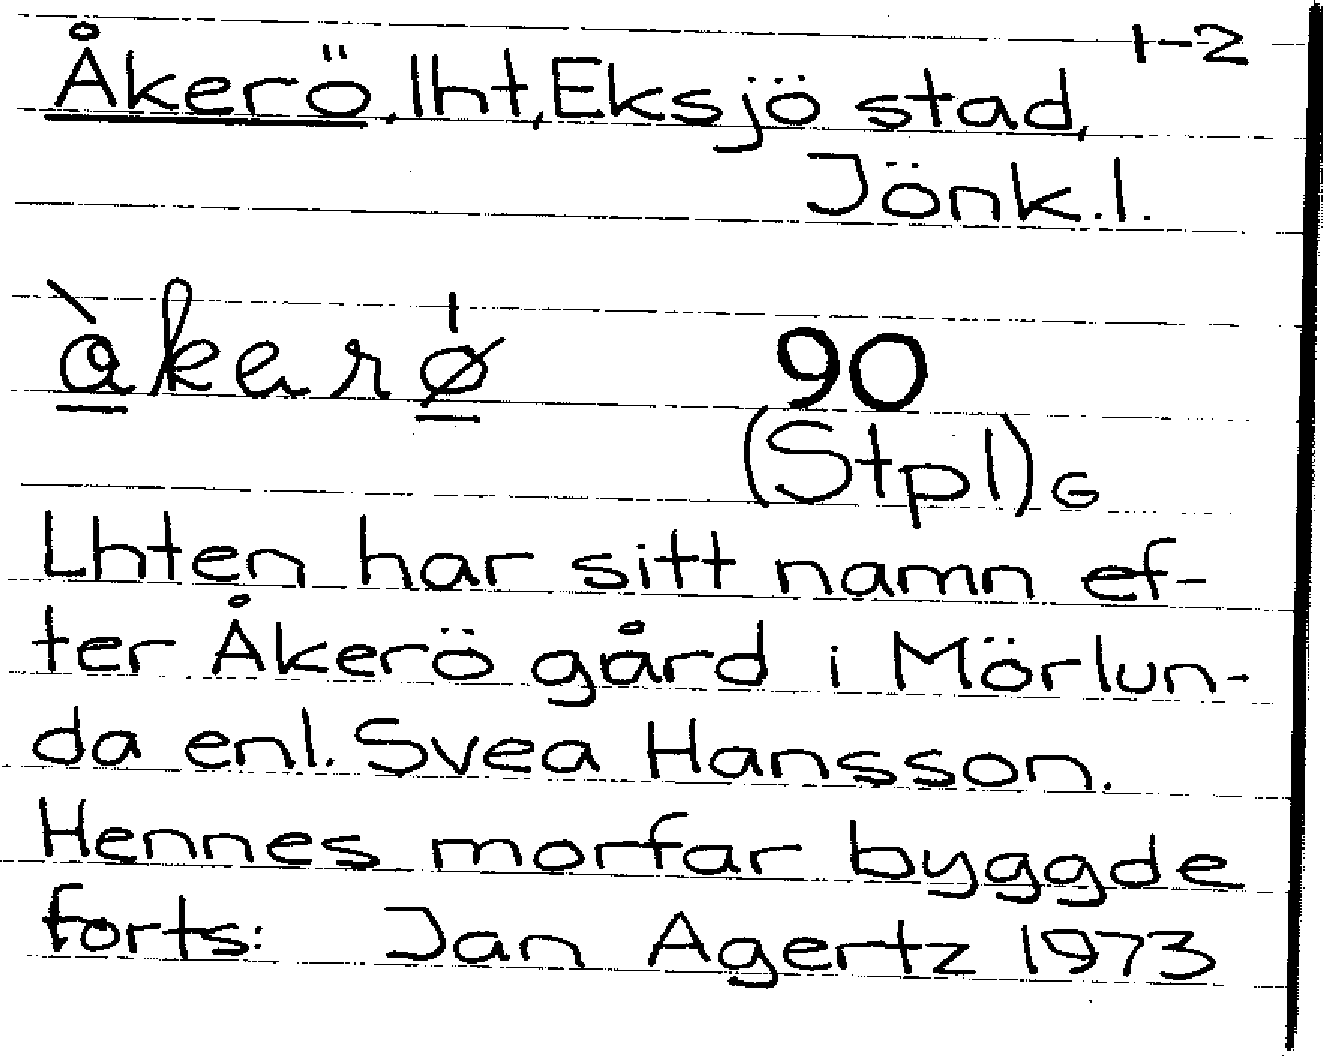 1-2
Åkerö, lht, Eksjö stad,
Jönk.l.
àkerǿ 90
(Stpl) G
Lhten har sitt namn ef-
ter Åkerö gård i Mörlun-
da enl. Svea Hansson.
Hennes morfar byggde
forts: Jan Agertz 1973